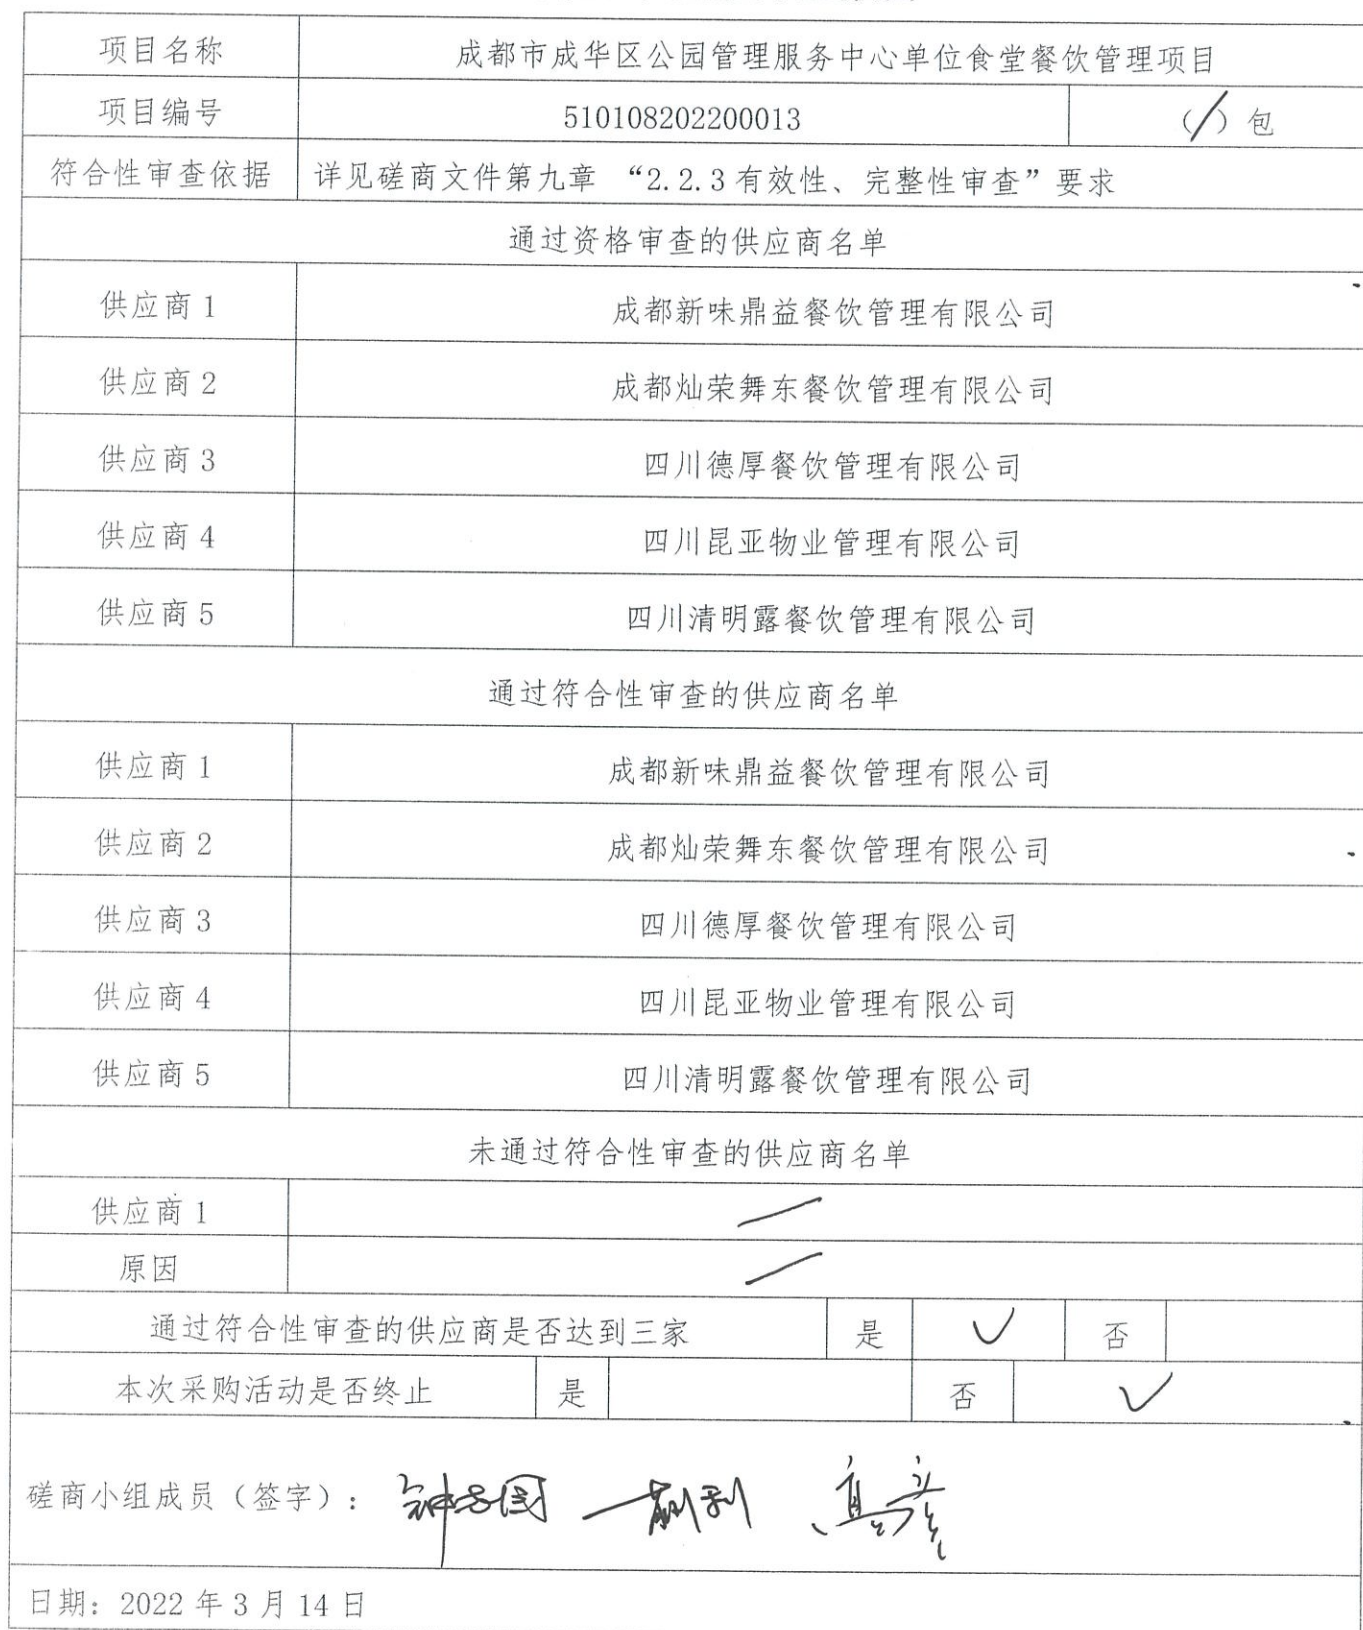 项目名称 成都市成华区公园管理服务中心单位食堂餐饮管理项目
项目编号 510108202200013 (/) 包
符合性审查依据 详见磋商文件第九章 “2.2.3有效性、完整性审查”要求
通过资格审查的供应商名单
供应商1 成都新味鼎益餐饮管理有限公司
供应商2 成都灿荣舞东餐饮管理有限公司
供应商3 四川德厚餐饮管理有限公司
供应商4 四川昆亚物业管理有限公司
供应商5 四川清明露餐饮管理有限公司
通过符合性审查的供应商名单
供应商1 成都新味鼎益餐饮管理有限公司
供应商2 成都灿荣舞东餐饮管理有限公司
供应商3 四川德厚餐饮管理有限公司
供应商4 四川昆亚物业管理有限公司
供应商5 四川清明露餐饮管理有限公司
未通过符合性审查的供应商名单
供应商1 /
原因 /
通过符合性审查的供应商是否达到三家 是 ✓ 否
本次采购活动是否终止 是 否 ✓
磋商小组成员（签字）：
日期：2022年3月14日